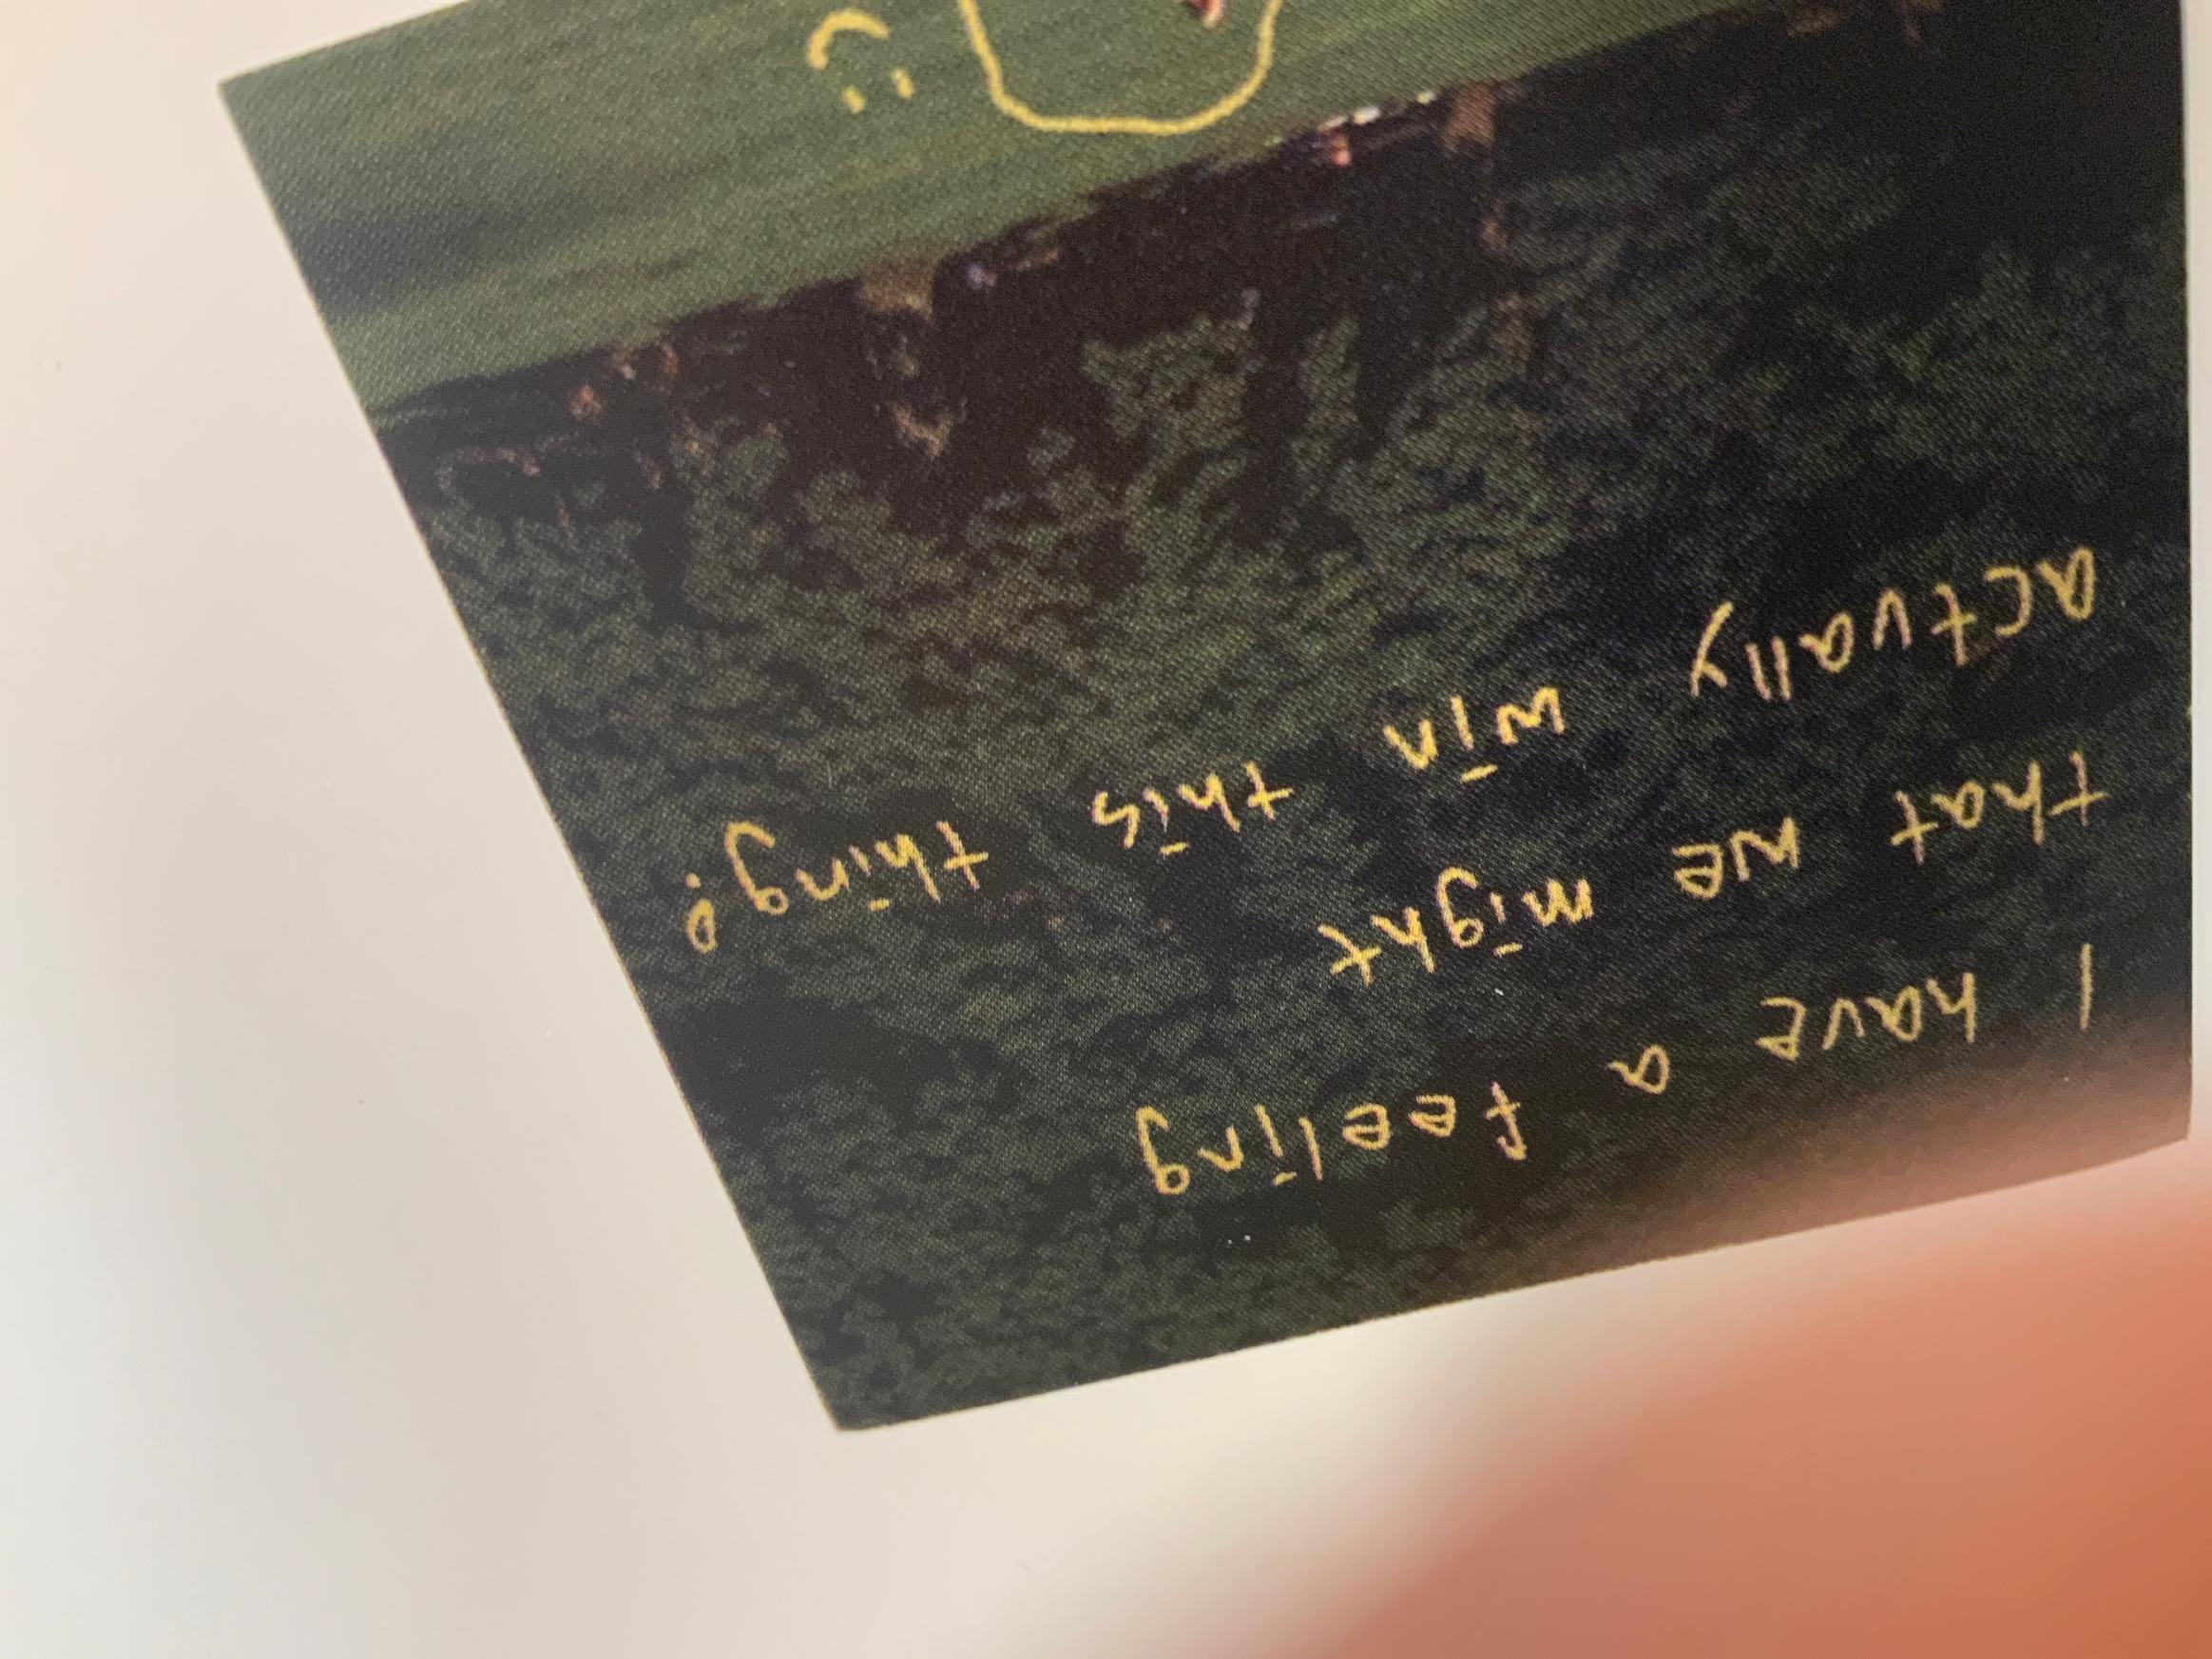 I have a feeling
that we might
actually win this thing!